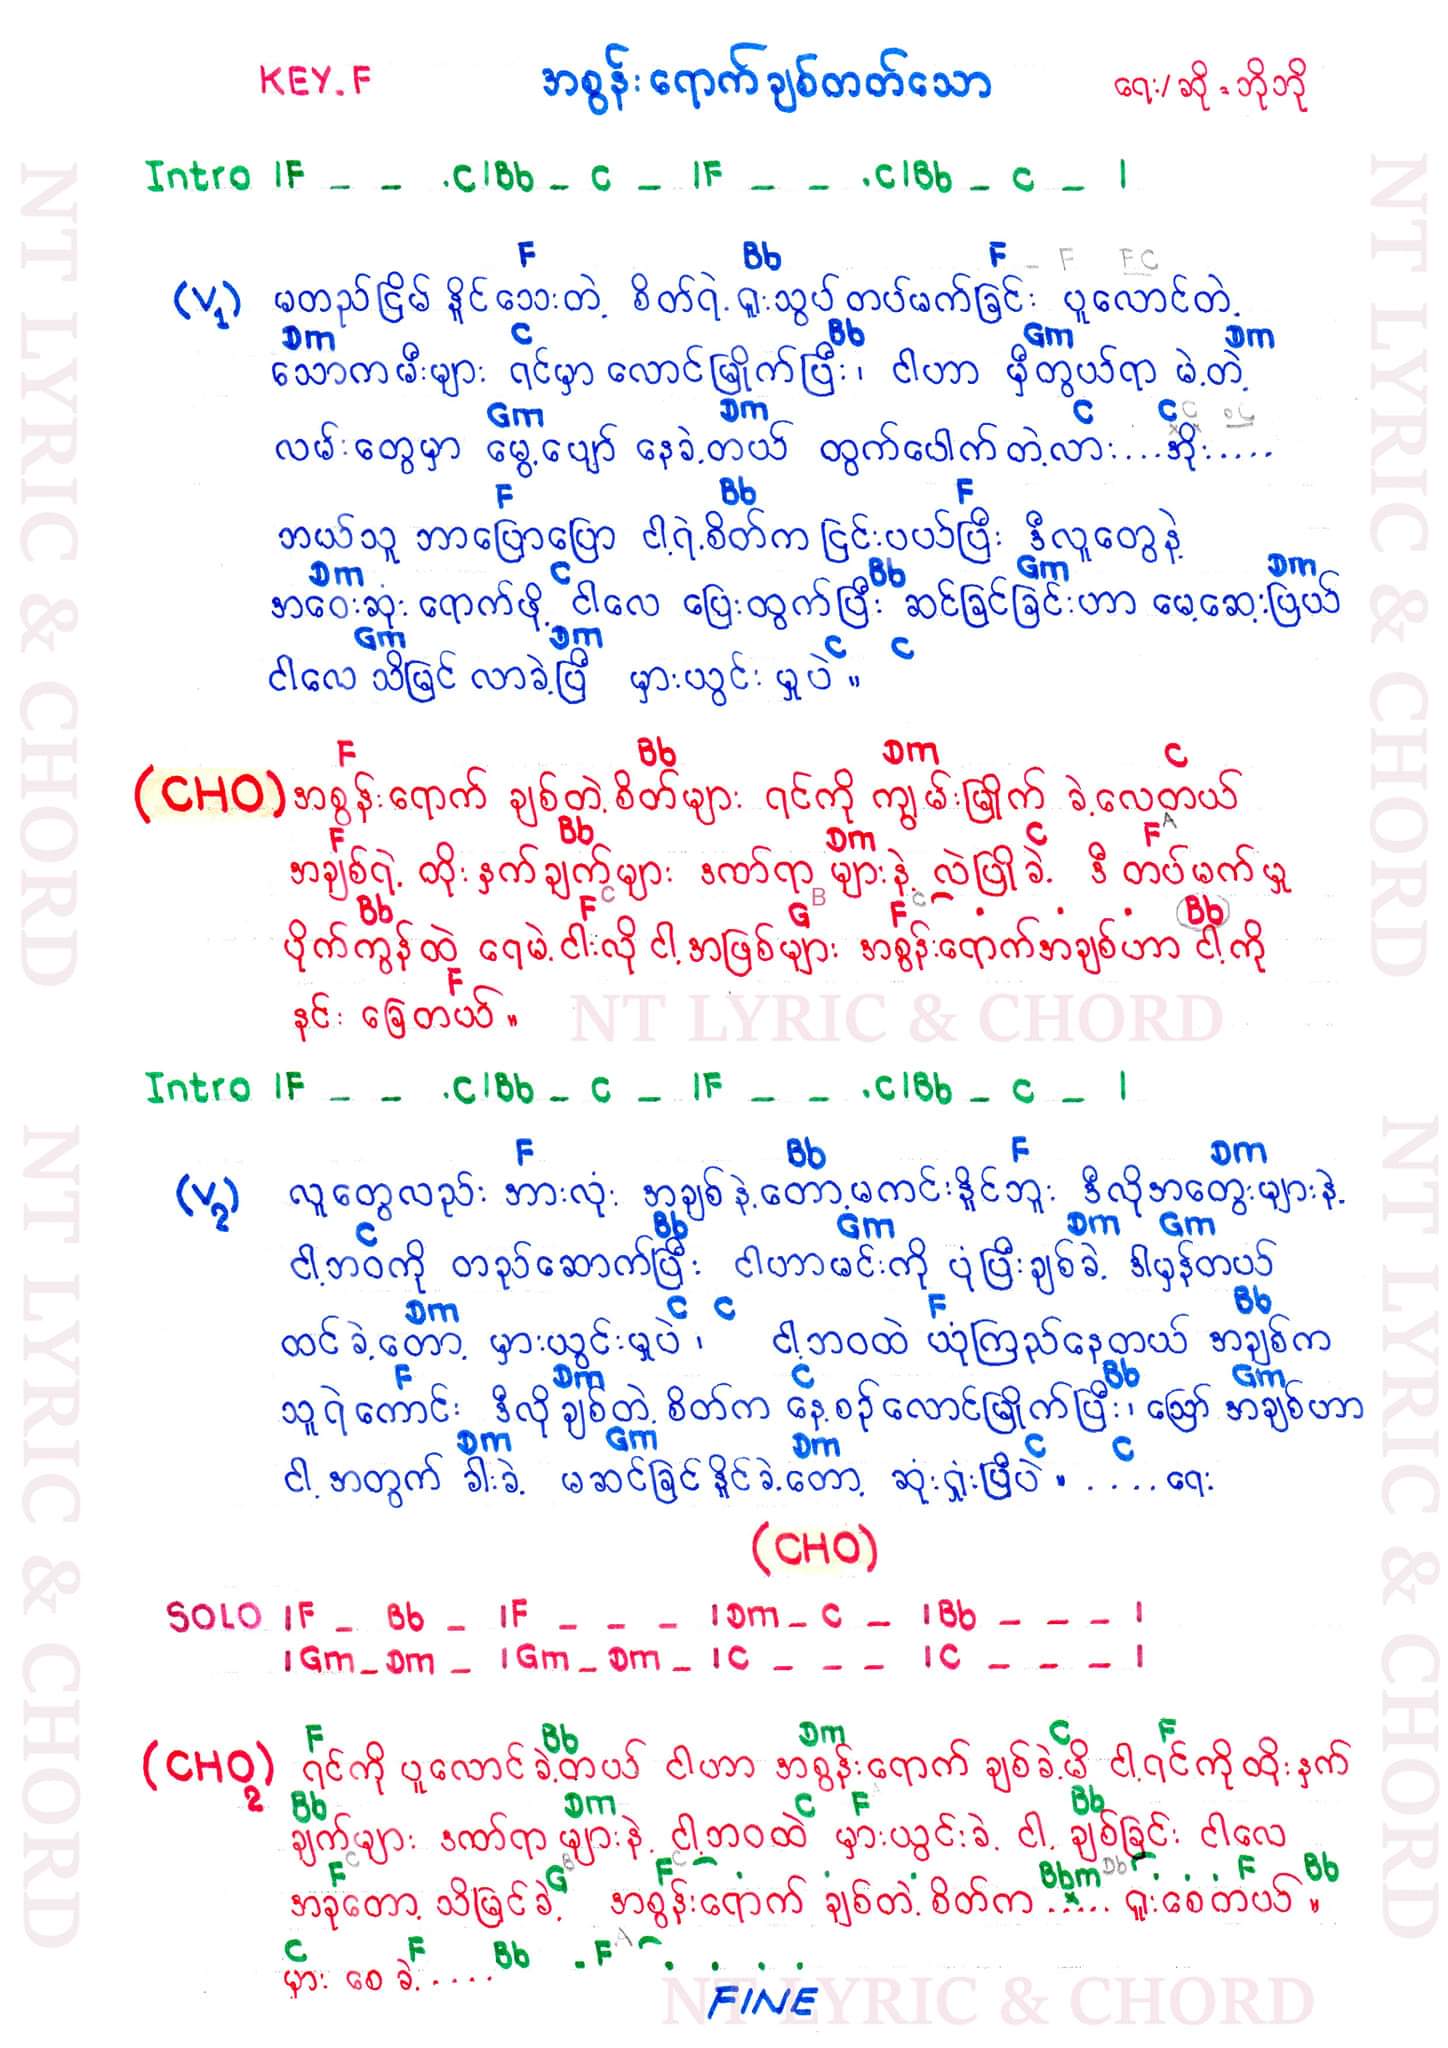 KEY. F အစွန်းရောက်ချစ်တတ်သော ရေး/ဆို = ဘိုဘို
Intro |F _ _ .C|Bb _ C _ |F _ _ .C|Bb _ C _ |
F Bb F _ F FC
(V1) မတည်ငြိမ်နိုင်သေးတဲ့ စိတ်ရဲ့ ရူးသွပ်တပ်မက်ခြင်း ပူလောင်တဲ့
Dm C Bb Gm Dm
သောကမီးများ ရင်မှာ လောင်မြိုက်ပြီး၊ ငါဟာ မှီတွယ်ရာ မဲ့တဲ့
Gm Dm C C
လမ်းတွေမှာ မွေ့ပျော် နေခဲ့တယ် ထွက်ပေါက်တဲ့လား....အိုး.....
F Bb F
ဘယ်သူ ဘာပြောပြော ငါ့ရဲ့စိတ်က ငြင်းပယ်ပြီး ဒီလူတွေနဲ့
Dm C Bb Gm Dm
အဝေးဆုံး ရောက်ဖို့ ငါလေ ပြေးထွက်ပြီး ဆင်ခြင်ခြင်းဟာ မေ့ဆေ့းပြယ်
Gm Dm C C
ငါလေ သိမြင် လာခဲ့ပြီ မှားယွင်းမှုပဲ ။
F Bb Dm C
(CHO) အစွန်းရောက် ချစ်တဲ့စိတ်များ ရင်ကို ကျွမ်းမြိုက် ခဲ့လေတယ်
F Bb Dm C F A
အချစ်ရဲ့ ထိုးနှက်ချက်များ ဒဏ်ရာ များနဲ့ လဲပြိုခဲ့ ဒီ တပ်မက်မှု
Bb F C G B F C . . . Bb
ပိုက်ကွန်ထဲ ရေမဲ့ငါးလို ငါ့အဖြစ်များ အစွန်းရောက်အချစ်ဟာ ငါ့ကို
F
နင်း ခြေတယ်။
Intro |F _ _ .C|Bb _ C _ |F _ _ .C|Bb _ C _ |
F Bb F Dm
(V2) လူတွေလည်း အားလုံး အချစ်နဲ့တော့မကင်းနိုင်ဘူး ဒီလိုအတွေးများနဲ့
C Bb Gm Dm Gm
ငါ့ဘဝကို တည်ဆောက်ပြီး ငါဟာမင်းကို ပုံပြီးချစ်ခဲ့ ဒါမှန်တယ်
Dm C C F Bb
ထင်ခဲ့တော့ မှားယွင်းမှုပဲ၊ ငါ့ဘဝထဲ ယုံကြည်နေတယ် အချစ်က
F Dm C Bb Gm
သူရဲကောင်း ဒီလိုချစ်တဲ့ စိတ်က နေ့စဉ်လောင်မြိုက်ပြီး၊ ဩော် အချစ်ဟာ
Dm Gm Dm C C
ငါ့အတွက် ခါးခဲ့ မဆင်ခြင်နိုင်ခဲ့တော့ ဆုံးရှုံးပြီပဲ။.....ရေး
(CHO)
SOLO |F _ Bb _ |F _ _ _ |Dm _ C _ |Bb _ _ _ |
|Gm _ Dm _ |Gm _ Dm _ |C _ _ _ |C _ _ _ |
F Bb Dm C F
(CHO2) ရင်ကို ပူလောင်ခဲ့တယ် ငါဟာ အစွန်းရောက် ချစ်ခဲ့မိ ငါ့ရင်ကိုထိုးနှက်
Bb Dm C F Bb
ချက်များ ဒဏ်ရာများနဲ့ ငါ့ဘဝထဲ မှားယွင်းခဲ့ ငါ့ ချစ်ခြင်း ငါလေ
F C G B F C . . . Bbm Db . . . F Bb
အခုတော့ သိမြင်ခဲ့ အစွန်းရောက် ချစ်တဲ့စိတ်က ..... ရူးစေတယ် ။
C F Bb . F A . . . .
မှား စေ ခဲ့.....
FINE
NT LYRIC & CHORD
NT LYRIC & CHORD
NT LYRIC & CHORD
NT LYRIC & CHORD
NT LYRIC & CHORD
NT LYRIC & CHORD